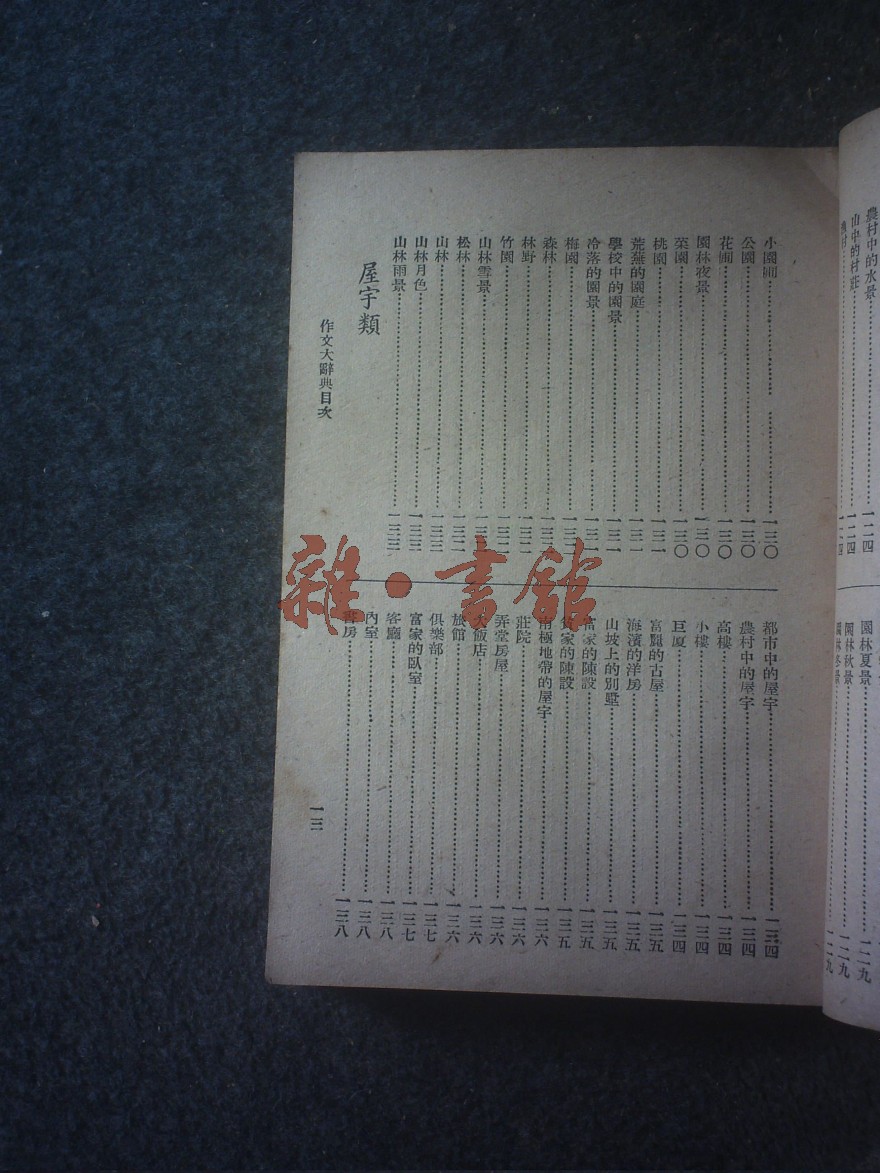 農村中的水景……一二四
山中的村莊……一二四
園林夏景……一二九
園林秋景……一二九
園林冬景……一二九
小園圃……一三〇
公園……一三〇
花圃……一三〇
園林夜景……一三〇
菜園……一三〇
桃園……一三一
荒蕪的園庭……一三一
學校中的園景……一三一
冷落的園景……一三一
梅園……
森林……
林野……
竹園……
山林雪景……
松林……
山林……一三三
山林月色……一三三
山林雨景……一三三
屋宇類
都市中的屋宇……一三四
農村中的屋宇……一三四
高樓……一三四
小樓……一三四
巨廈……一三四
富麗的古屋……一三五
海濱的洋房……一三五
山坡上的別墅……一三五
富家的陳設……一三五
貧家的陳設……一三五
南極地帶的屋宇……一三六
莊院……一三六
弄堂房屋……一三六
大飯店……一三六
旅館……一三六
俱樂部……一三七
富家的臥室……一三七
客廳……一三八
內室……一三八
書房……一三八
作文大辭典目次
一三
雜·書館